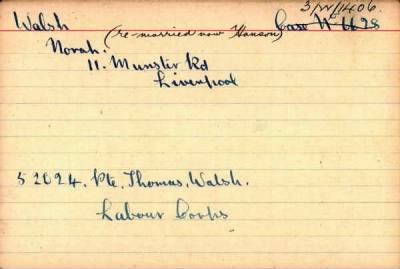 3/W/1406.
Walsh (re-married now Hanson) Case No 6628
Norah.
11. Munster Rd
Liverpool
52024. Pte. Thomas. Walsh.
Labour Corps